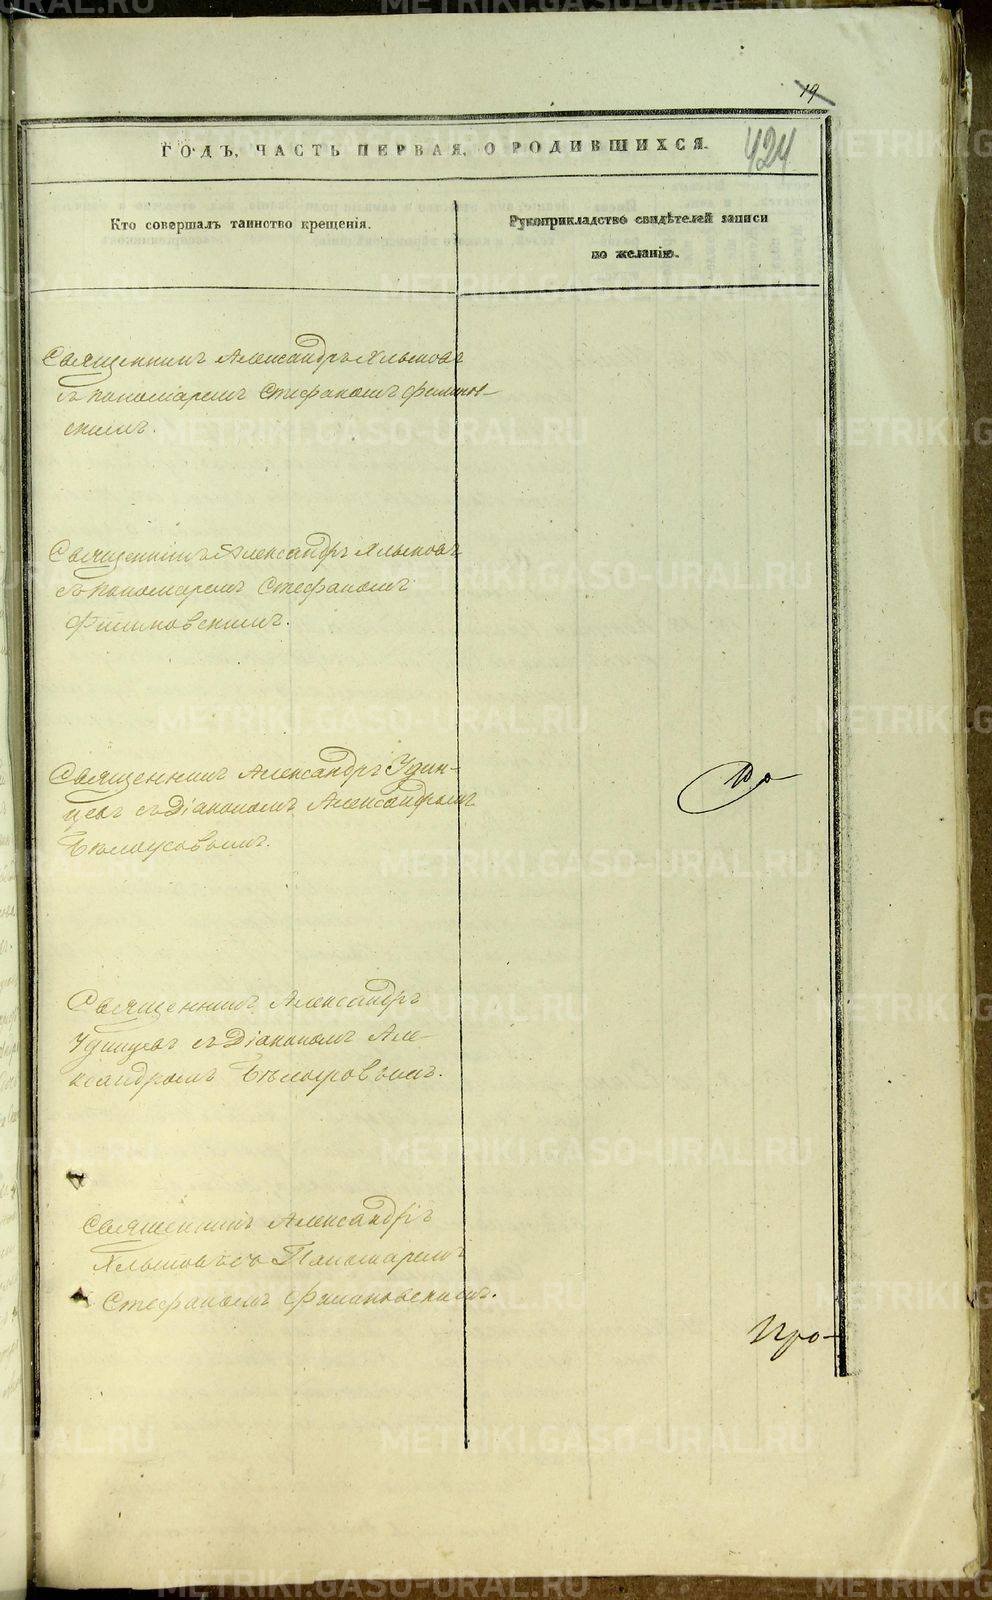 19
424
ГОДЪ, ЧАСТЬ ПЕРВАЯ, О РОДИВШИХСЯ.
Кто совершалъ таинство крещенія.
Рукоприкладство свидѣтелей записи
по желанію.
Священникъ Александръ Хлыновъ
съ пономаремъ Стефаномъ Филинов-
скимъ.
Священникъ Александръ Хлыновъ
съ пономаремъ Стефаномъ
Филиновскимъ.
Священникъ Александръ Удин-
цевъ съ Діакономъ Александромъ
Бѣлоусовымъ.
Священникъ Александръ
Удинцевъ съ Діакономъ Але-
ксандромъ Бѣлоусовымъ.
Священникъ Александръ
Хлыновъ съ Пономаремъ
Стефаномъ Филиновскимъ.
Про-
METRIKI.GASO-URAL.RU